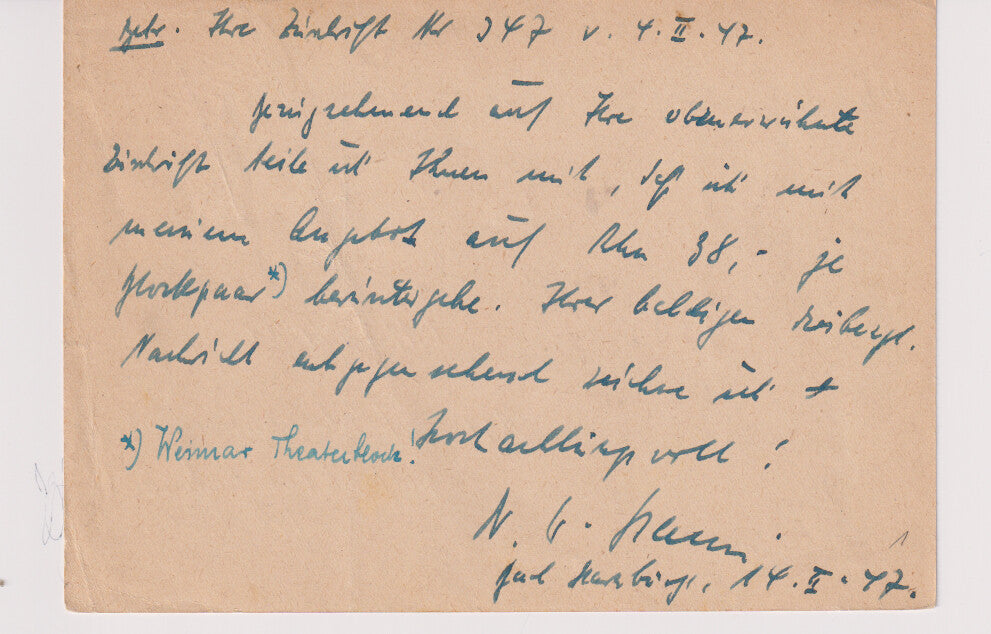 Betr. Ihre Zuschrift Nr 347 v. 4.II.47.
Bezugnehmend auf Ihre obenerwähnte
Zuschrift teile ich Ihnen mit, daß ich mit
meinem Angebot auf RM 38,- je
Blockpaar*) heruntergehe. Ihrer baldigen
Nachricht entgegensehend zeichne ich
*) Weimar Theaterblock! Hochachtungsvoll!
Bad Harzburg, 14.II.47.